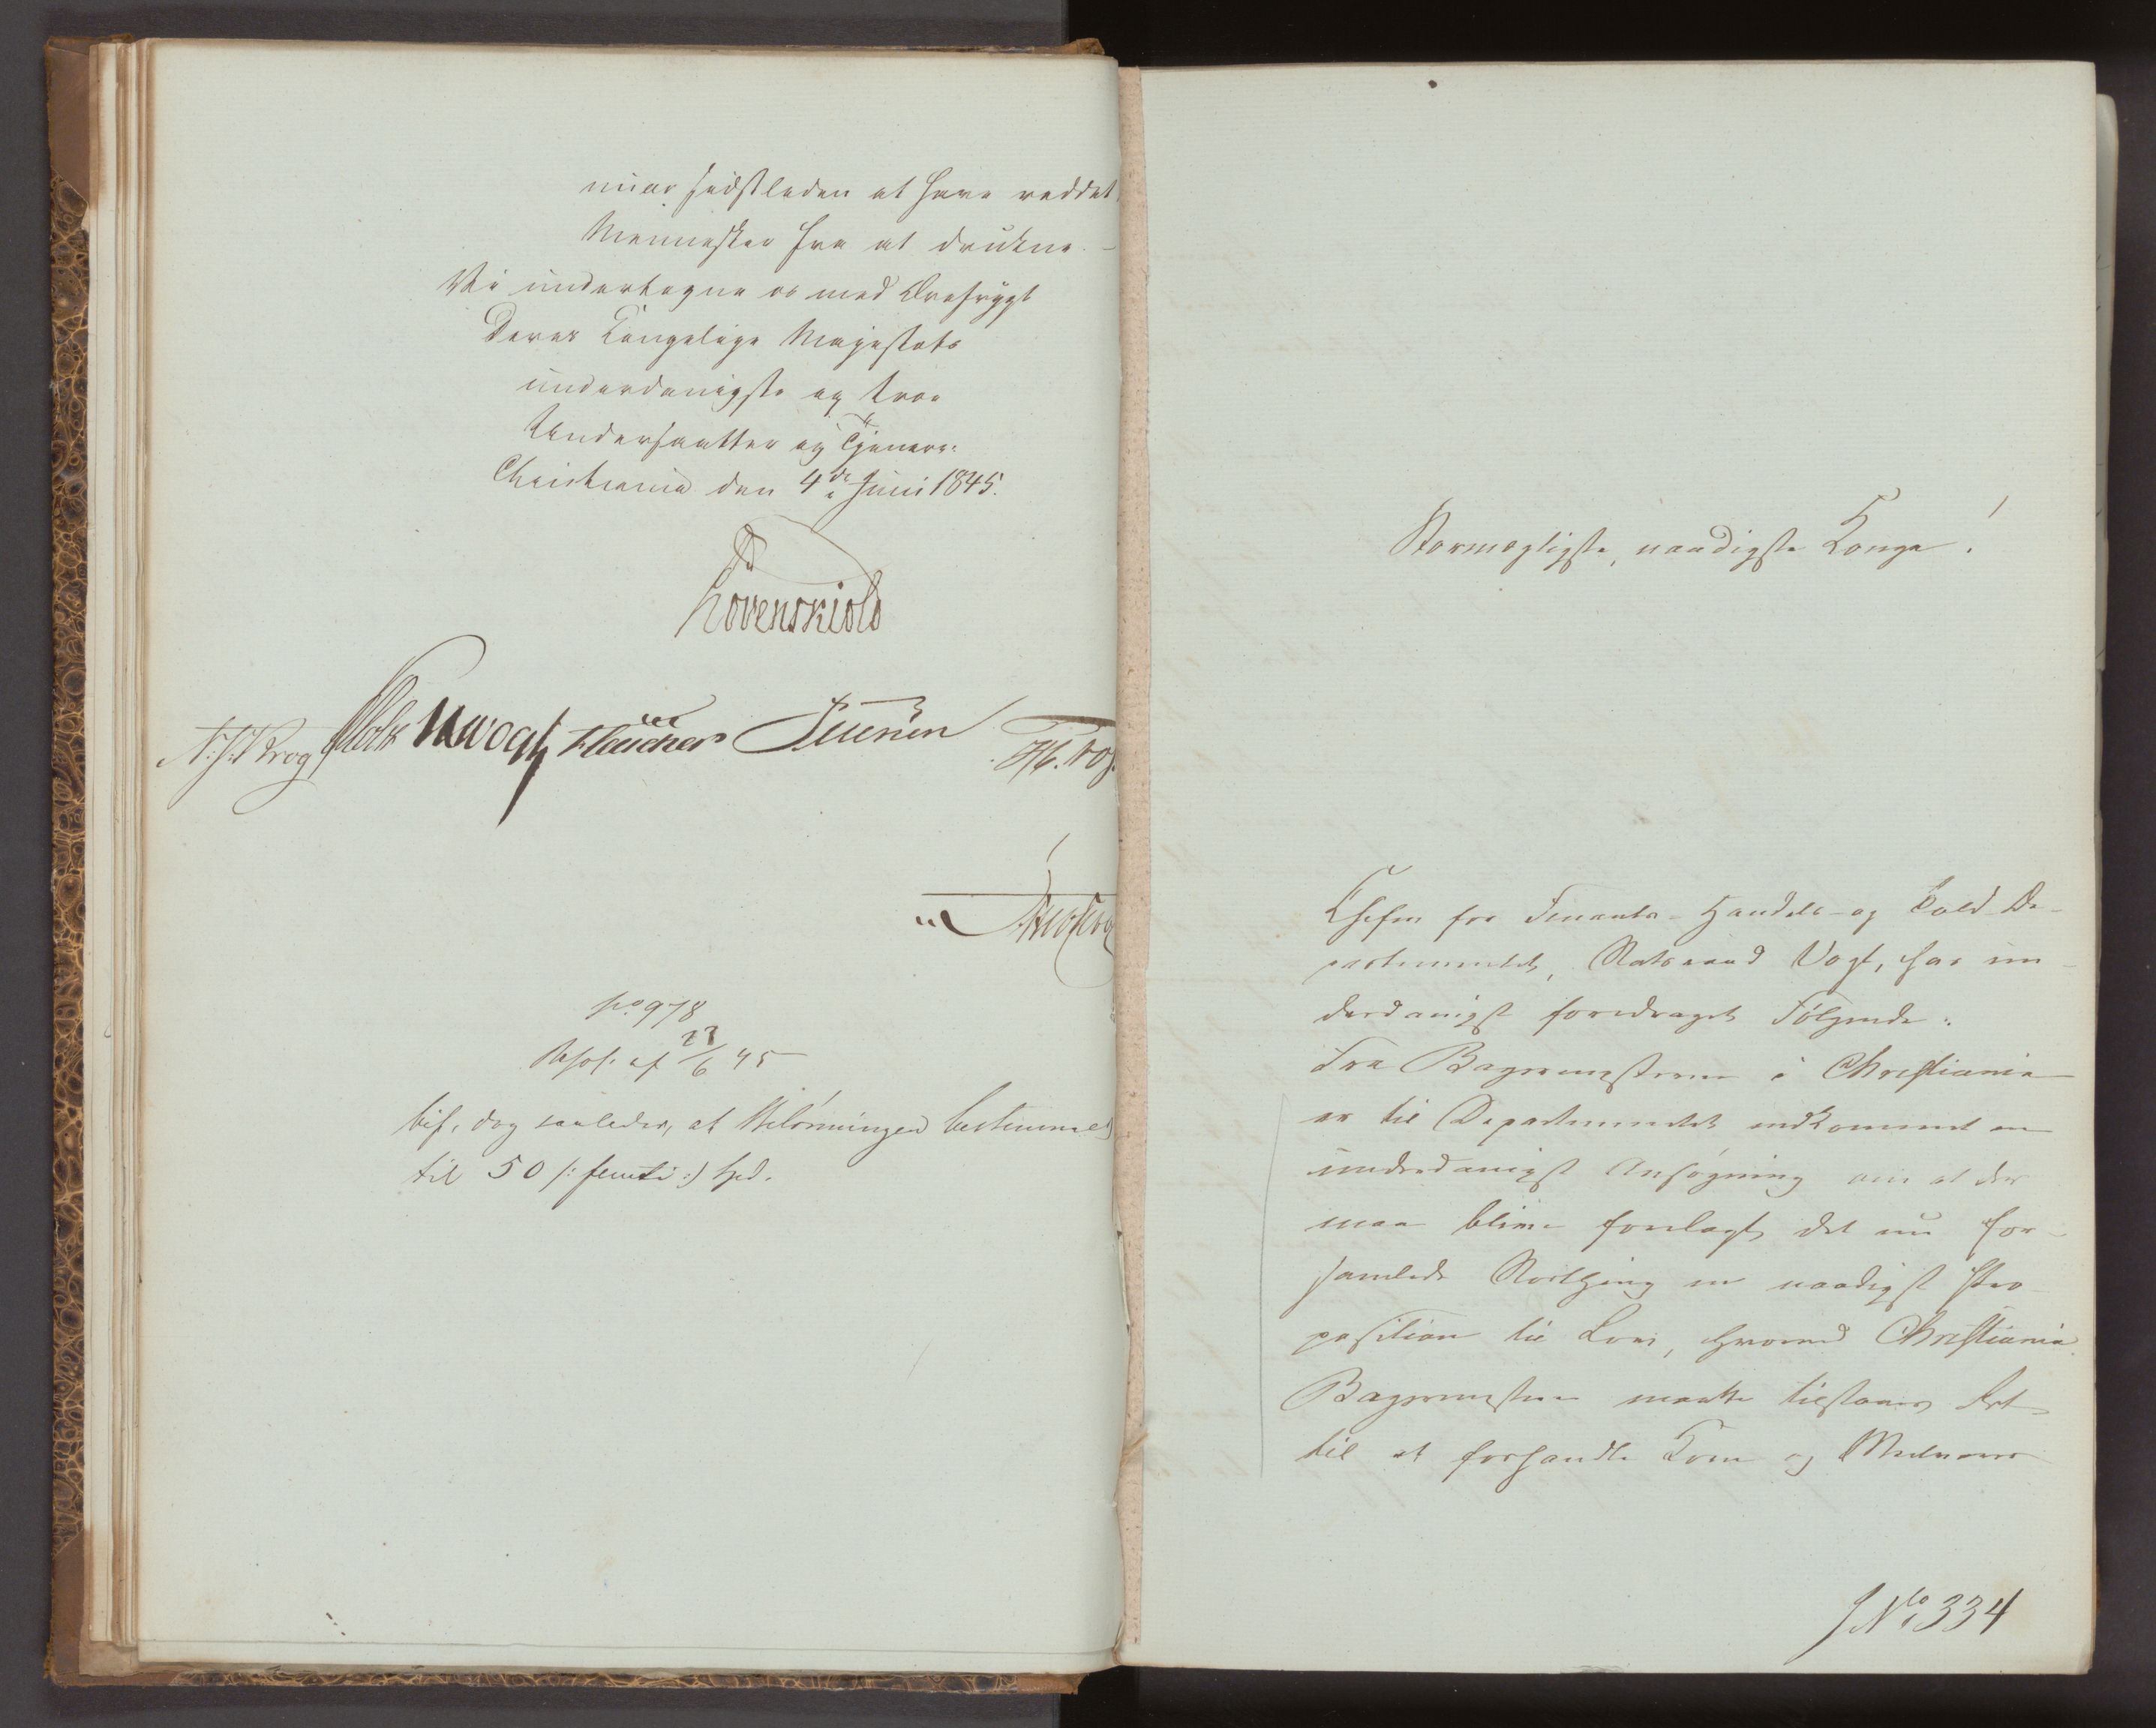 nuar sidstleden at have reddet
Mennesker fra at drukne. –
Vi undertegne os med Ærefrygt
Deres Kongelige Majestæts
underdanigste og troe
Undersaatter og Tjenere:
Christiania den 4de Juni 1845.
Løvenskiold
Krog Holst Vogt Fleischer Sibbern
No 978
Resol. af 23/6 45
bif. dog saaledes, at Belønningen bestemmes
til 50 /: femti :/ Spd.
Stormægtigste, naadigste Konge!
Chefen for Finants- Handels- og Told De-
partementet, Statsraad Vogt, har un-
derdanigst foredraget Følgende:
Fra Bagermesterne i Christiania
er til Departementet indkommet en
underdanigst Ansøgning om at der
maa blive forelagt det nu for-
samlede Storthing en naadigst Pro-
position til Lov, hvorved Christiania
Bagermestere maatte tilstaaes Ret
til at forhandle Korn og Meelvarer
JNo 334